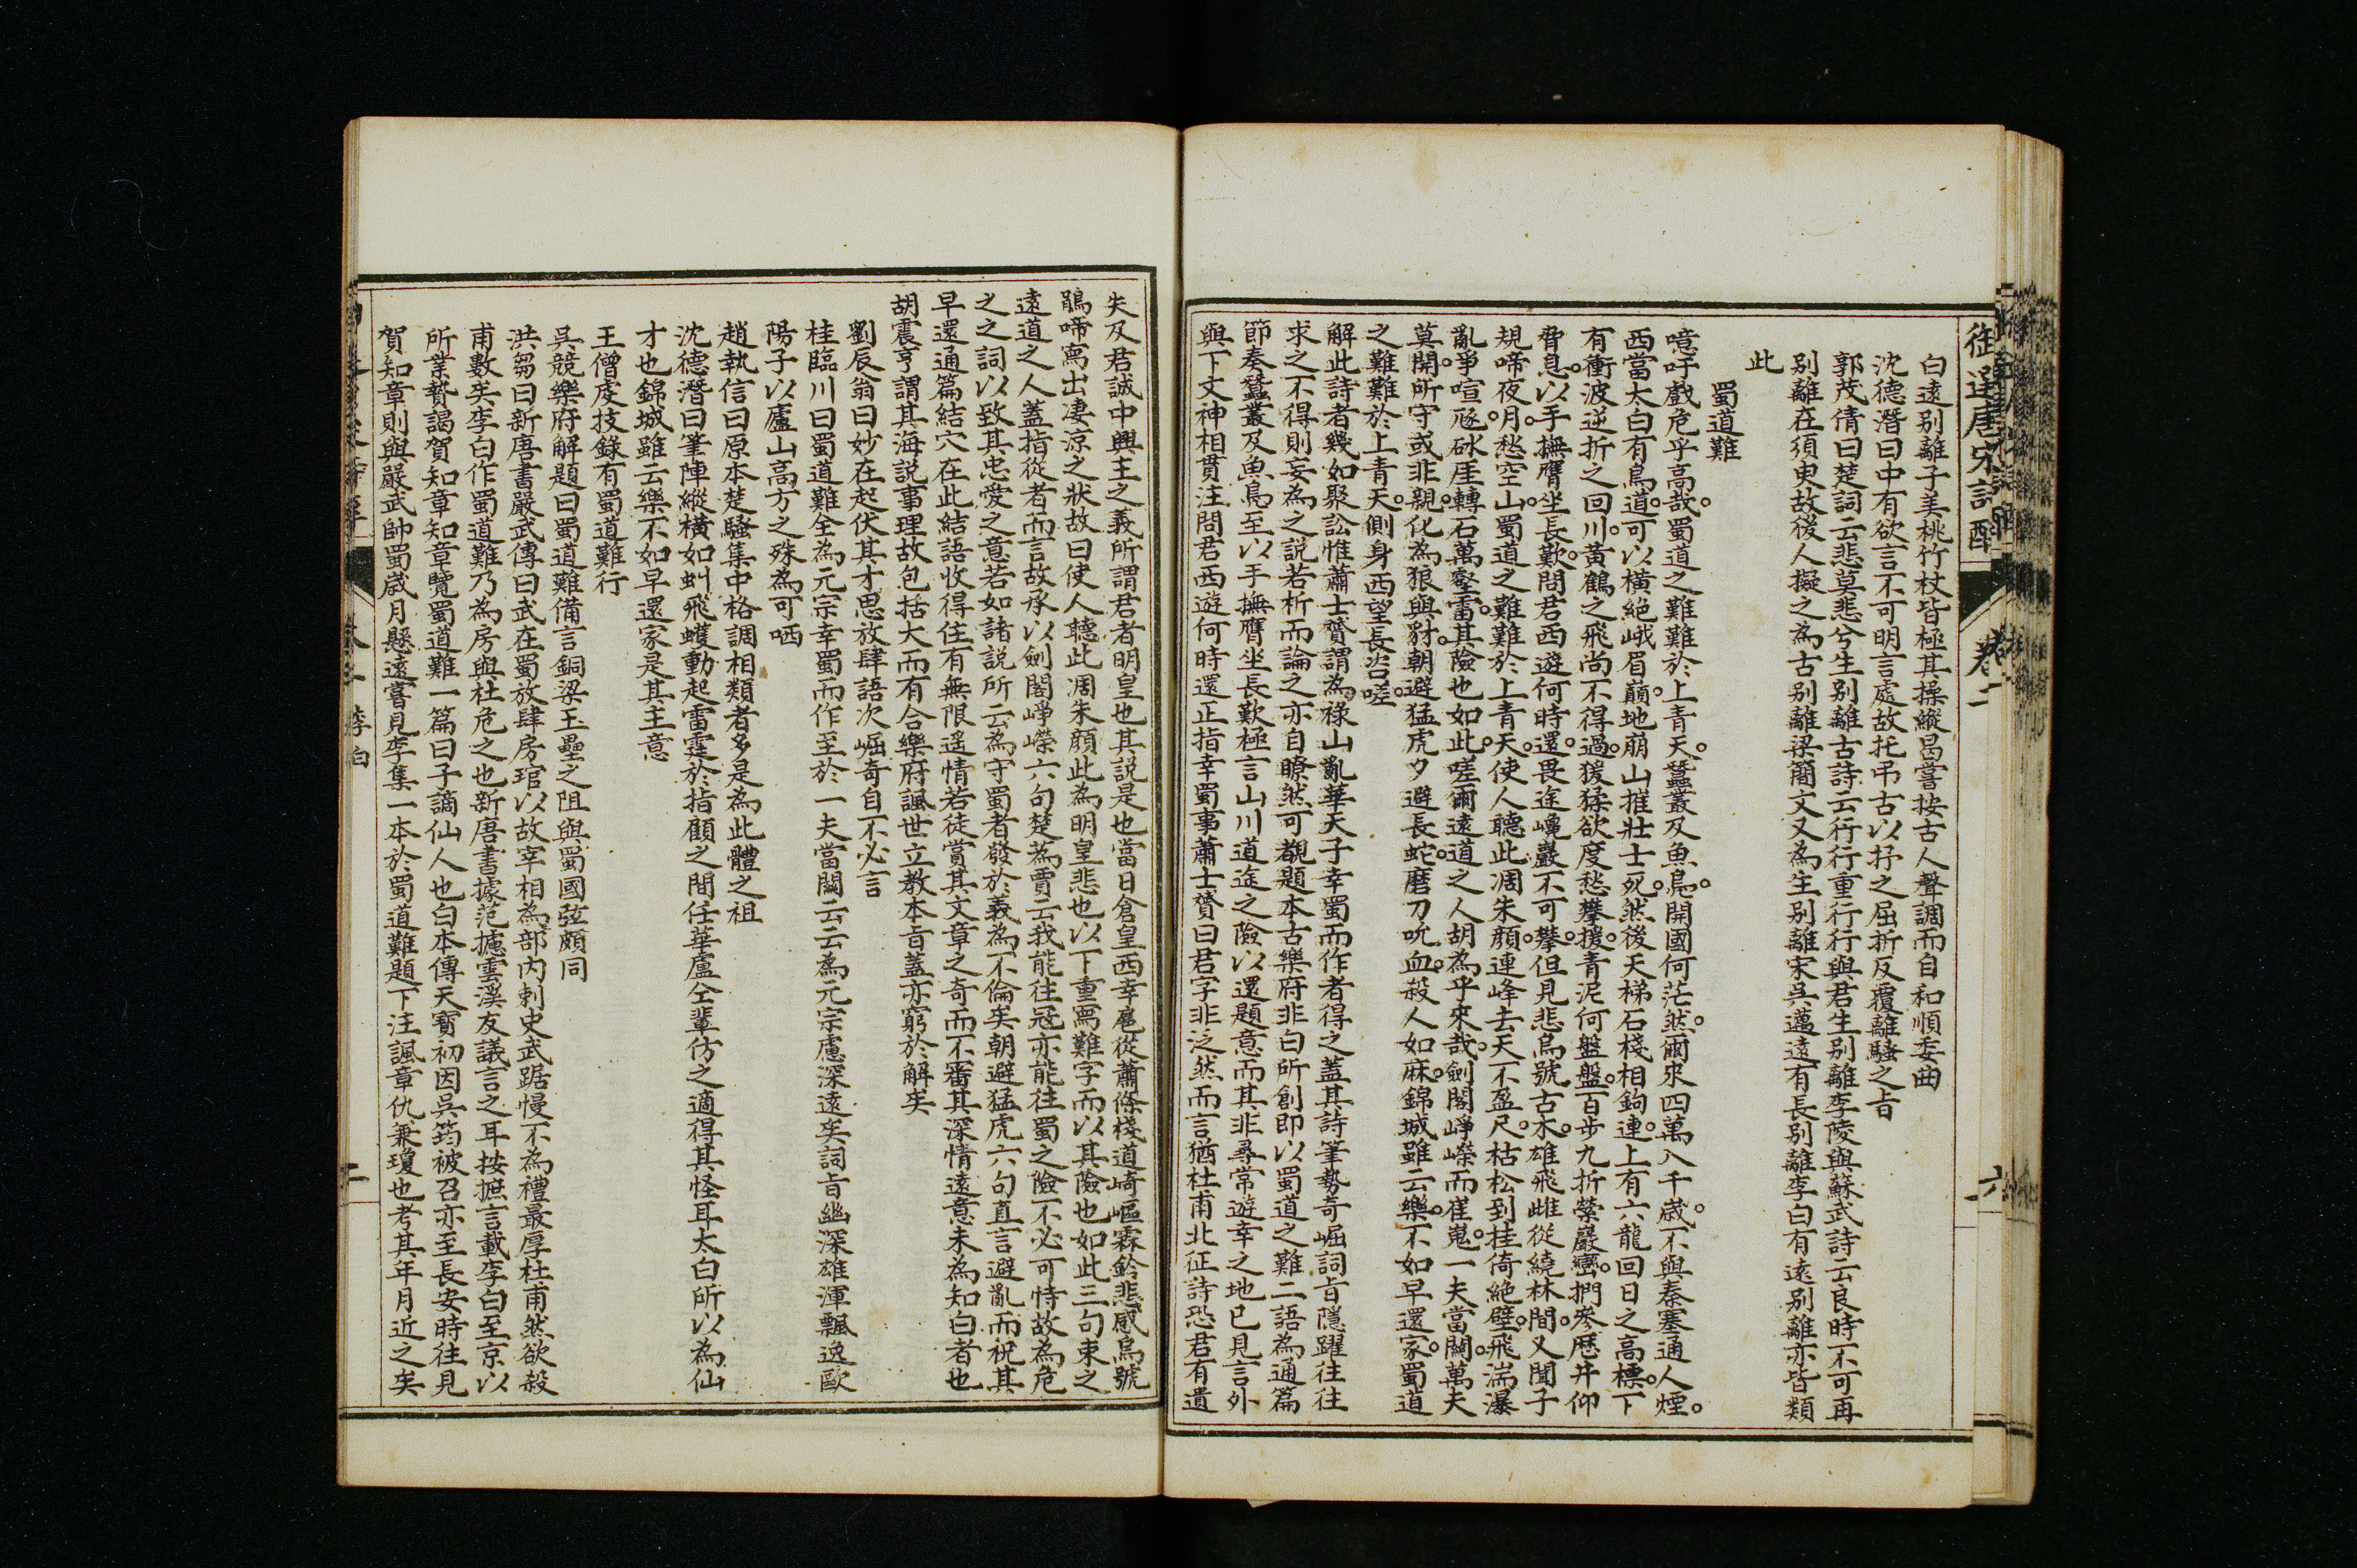 御選唐宋詩醇
卷二
六
白遠別離子美桃竹杖皆極其操縱曷嘗按古人聲調而自和順委曲
沈德潛曰中有欲言不可明言處故托弔古以抒之屈折反覆離騷之旨
郭茂倩曰楚詞云悲莫悲兮生別離古詩云行行重行行與君生別離李陵與蘇武詩云良時不可再
別離在須臾故後人擬之為古別離梁簡文又為生別離宋吳邁遠有長別離李白有遠別離亦皆類
此
蜀道難
噫吁戲危乎高哉蜀道之難難於上青天蠶叢及魚鳧開國何茫然爾來四萬八千歲不與秦塞通人煙
西當太白有鳥道可以橫絕峨眉巔地崩山摧壯士死然後天梯石棧相鉤連上有六龍回日之高標下
有衝波逆折之回川黃鶴之飛尚不得過猨猱欲度愁攀援青泥何盤盤百步九折縈巖巒捫參歷井仰
脅息以手撫膺坐長歎問君西遊何時還畏途巉巖不可攀但見悲鳥號古木雄飛雌從繞林間又聞子
規啼夜月愁空山蜀道之難難於上青天使人聽此凋朱顏連峰去天不盈尺枯松到挂倚絕壁飛湍瀑
亂爭喧豗砯厓轉石萬壑雷其險也如此嗟爾遠道之人胡為乎來哉劍閣崢嶸而崔嵬一夫當關萬夫
莫開所守或非親化為狼與豺朝避猛虎夕避長蛇磨刀吮血殺人如麻錦城雖云樂不如早還家蜀道
之難難於上青天側身西望長咨嗟
解此詩者幾如聚訟惟蕭士贇謂為祿山亂華天子幸蜀而作者得之蓋其詩筆勢奇崛詞旨隱躍往往
求之不得則妄為之說若析而論之亦自瞭然可覩題本古樂府非白所創即以蜀道之難二語為通篇
節奏蠶叢及魚鳧至以手撫膺坐長歎極言山川道途之險以還題意而其非尋常遊幸之地已見言外
與下文神相貫注問君西遊何時還正指幸蜀事蕭士贇曰君字非泛然而言猶杜甫北征詩恐君有遺
失及君誠中興主之義所謂君者明皇也其說是也當日倉皇西幸扈從蕭條棧道崎嶇霖鈴悲感鳥號
鵑啼寫出淒涼之狀故曰使人聽此凋朱顏此為明皇悲也以下重寫難字而以其險也如此三句束之
遠道之人蓋指從者而言故承以劍閣崢嶸六句楚蒍賈云我能往寇亦能往蜀之險不必可恃故為危
之之詞以致其忠愛之意若如諸說所云為守蜀者發於義為不倫矣朝避猛虎六句直言避亂而祝其
早還通篇結穴在此結語收得住有無限遙情若徒賞其文章之奇而不審其深情遠意未為知白者也
胡震亨謂其海說事理故包括大而有合樂府諷世立教本旨蓋亦窮於解矣
劉辰翁曰妙在起伏其才思放肆語次崛奇自不必言
桂臨川曰蜀道難全為元宗幸蜀而作至於一夫當關云云為元宗慮深遠矣詞旨幽深雄渾飄逸歐
陽子以廬山高方之殊為可哂
趙執信曰原本楚騷集中格調相類者多是為此體之祖
沈德潛曰筆陣縱橫如虯飛蠖動起雷霆於指顧之間任華盧仝輩仿之適得其怪耳太白所以為仙
才也錦城雖云樂不如早還家是其主意
王僧虔技錄有蜀道難行
吳競樂府解題曰蜀道難備言銅梁玉壘之阻與蜀國弦頗同
洪芻曰新唐書嚴武傳曰武在蜀放肆房琯以故宰相為部內刺史武踞慢不為禮最厚杜甫然欲殺
甫數矣李白作蜀道難乃為房與杜危之也新唐書據范攄雲溪友議言之耳按摭言載李白至京以
所業贄謁賀知章知章覽蜀道難一篇曰子謫仙人也白本傳天寶初因吳筠被召亦至長安時往見
賀知章則與嚴武帥蜀歲月懸遠嘗見李集一本於蜀道難題下注諷章仇兼瓊也考其年月近之矣
李白